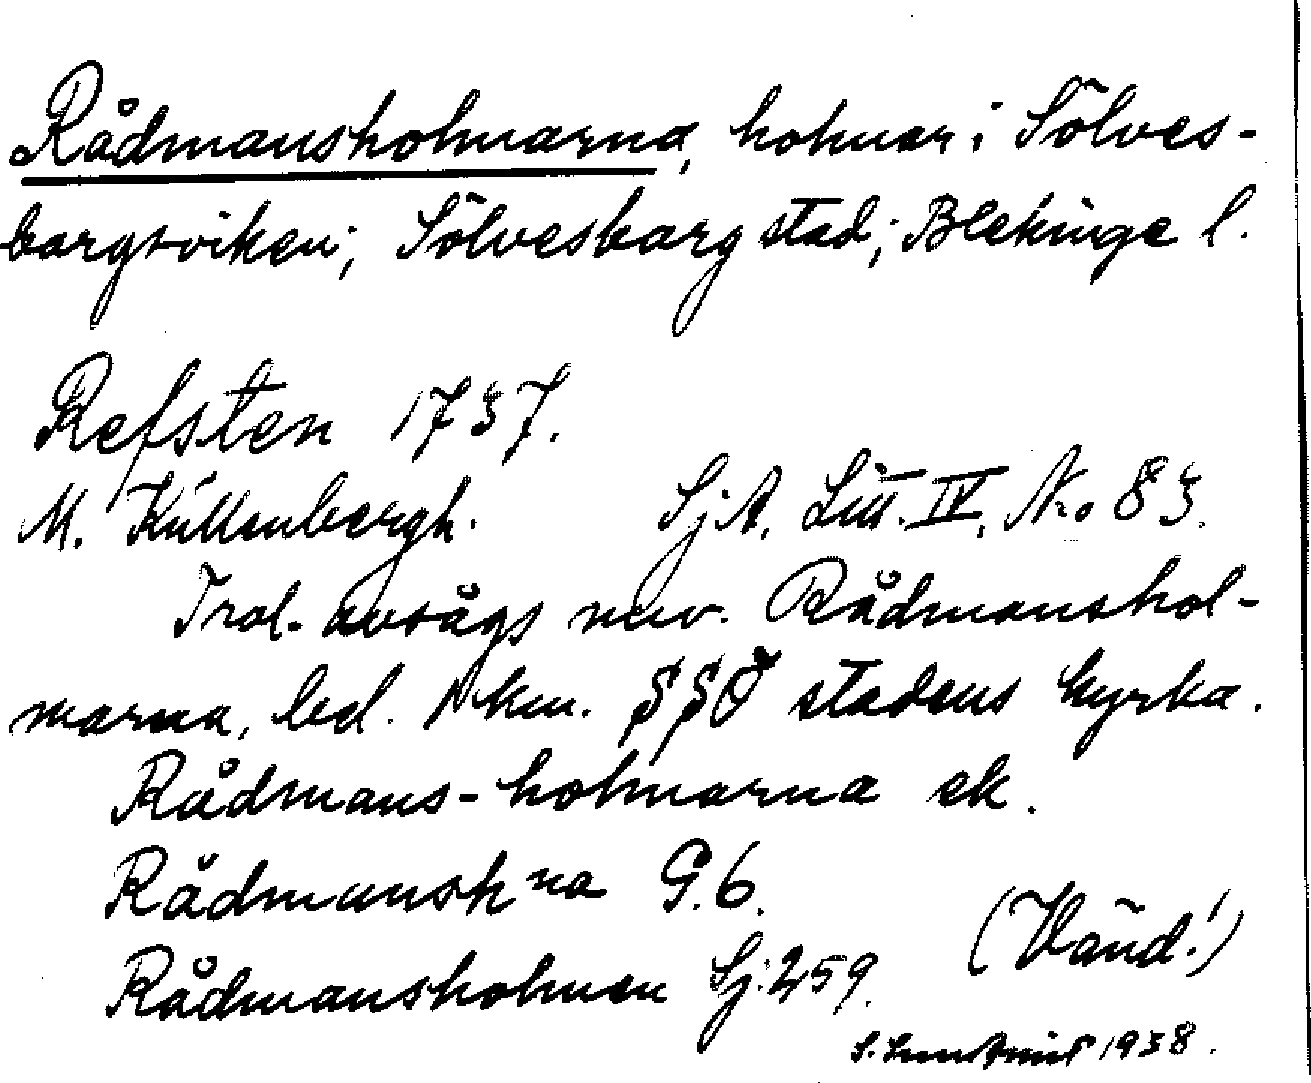 Rådmansholmarna, holmar i Sölves-
borgsviken; Sölvesborg stad; Blekinge l.
Refsten 1737.
M. Küllenbergh. Sj.A. Litt. IV, No 83.
Trol. avsågs nuv. Rådmanshol-
marna, bel. 1 km. SSÖ stadens kyrka.
Rådmans-holmarna ek.
Rådmansh na G.6.
Rådmansholmen Sj.259.
(Vänd!)
S. 1938.